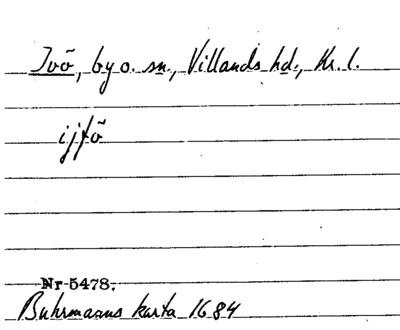 Ivö, by o. sn., Villands hd., Kr. l.
ijfö
Nr 5478.
Buhrmanns karta 1684